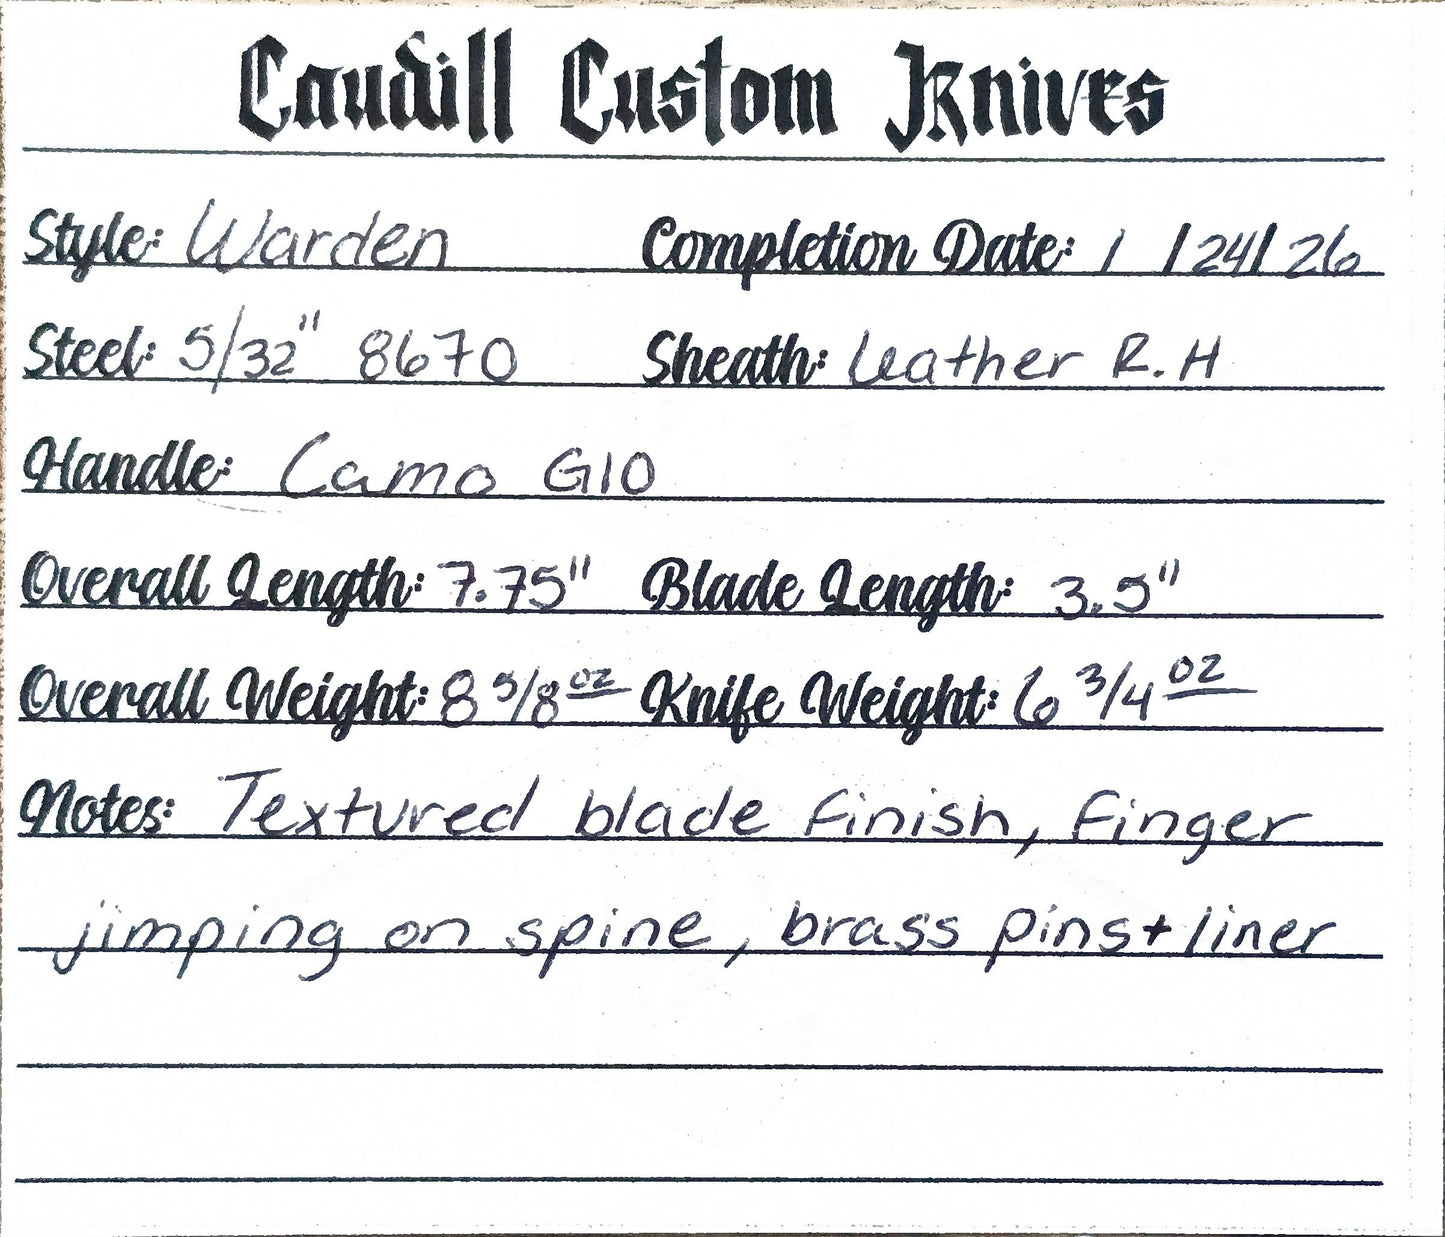 Caudill Custom Knives
Style: Warden Completion Date: 1 / 24 / 26
Steel: 5/32" 8670 Sheath: Leather R.H
Handle: Camo G10
Overall Length: 7.75" Blade Length: 3.5"
Overall Weight: 8 5/8 oz Knife Weight: 6 3/4 oz
Notes: Textured blade finish, finger
jimping on spine, brass pins + liner